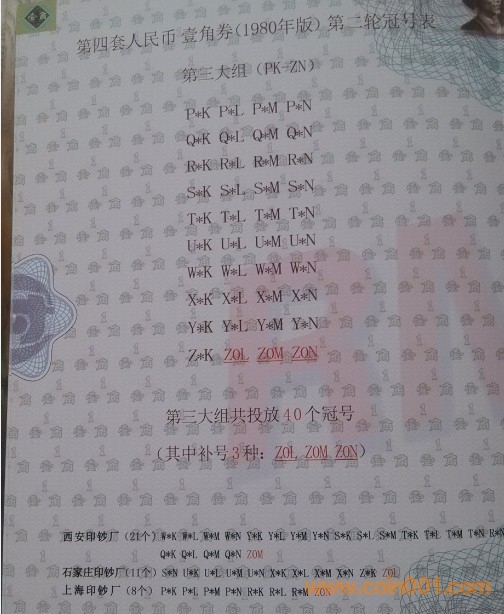 第四套人民币 壹角券(1980年版) 第二轮冠号表
第三大组 (PK-ZN)
P*K P*L P*M P*N
Q*K Q*L Q*M Q*N
R*K R*L R*M R*N
S*K S*L S*M S*N
T*K T*L T*M T*N
U*K U*L U*M U*N
W*K W*L W*M W*N
X*K X*L X*M X*N
Y*K Y*L Y*M Y*N
Z*K ZOL ZOM ZON
第三大组共投放40个冠号
(其中补号3种: ZOL ZOM ZON)
西安印钞厂 (21个) W*K W*L W*M W*N Y*K Y*L Y*M Y*N S*K S*L S*M T*K T*L T*M T*N R*N
Q*K Q*L Q*M Q*N ZOM
石家庄印钞厂(11个) S*N U*K U*L U*M U*N X*K X*L X*M X*N Z*K ZOL
上海印钞厂 (8个) P*K P*L P*M P*N R*K R*L R*M ZON
www.coin001.com